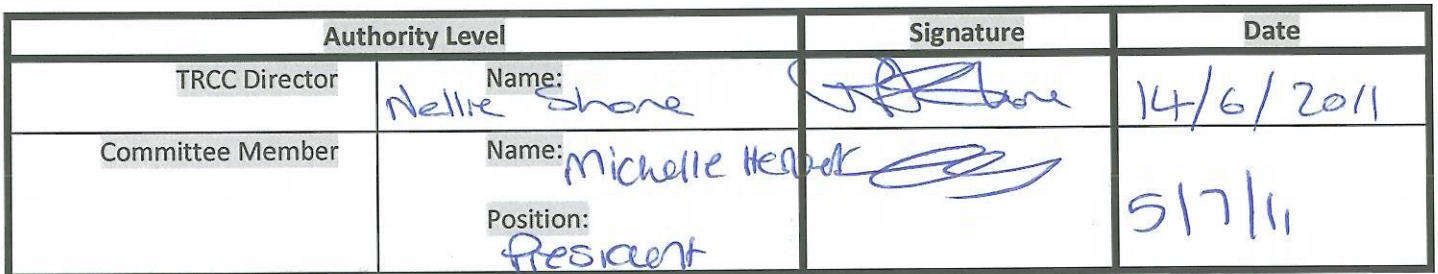 Authority Level Signature Date
TRCC Director Name: Nellie Shone 14/6/2011
Committee Member Name: Michelle Herbert
5/7/11
Position:
President